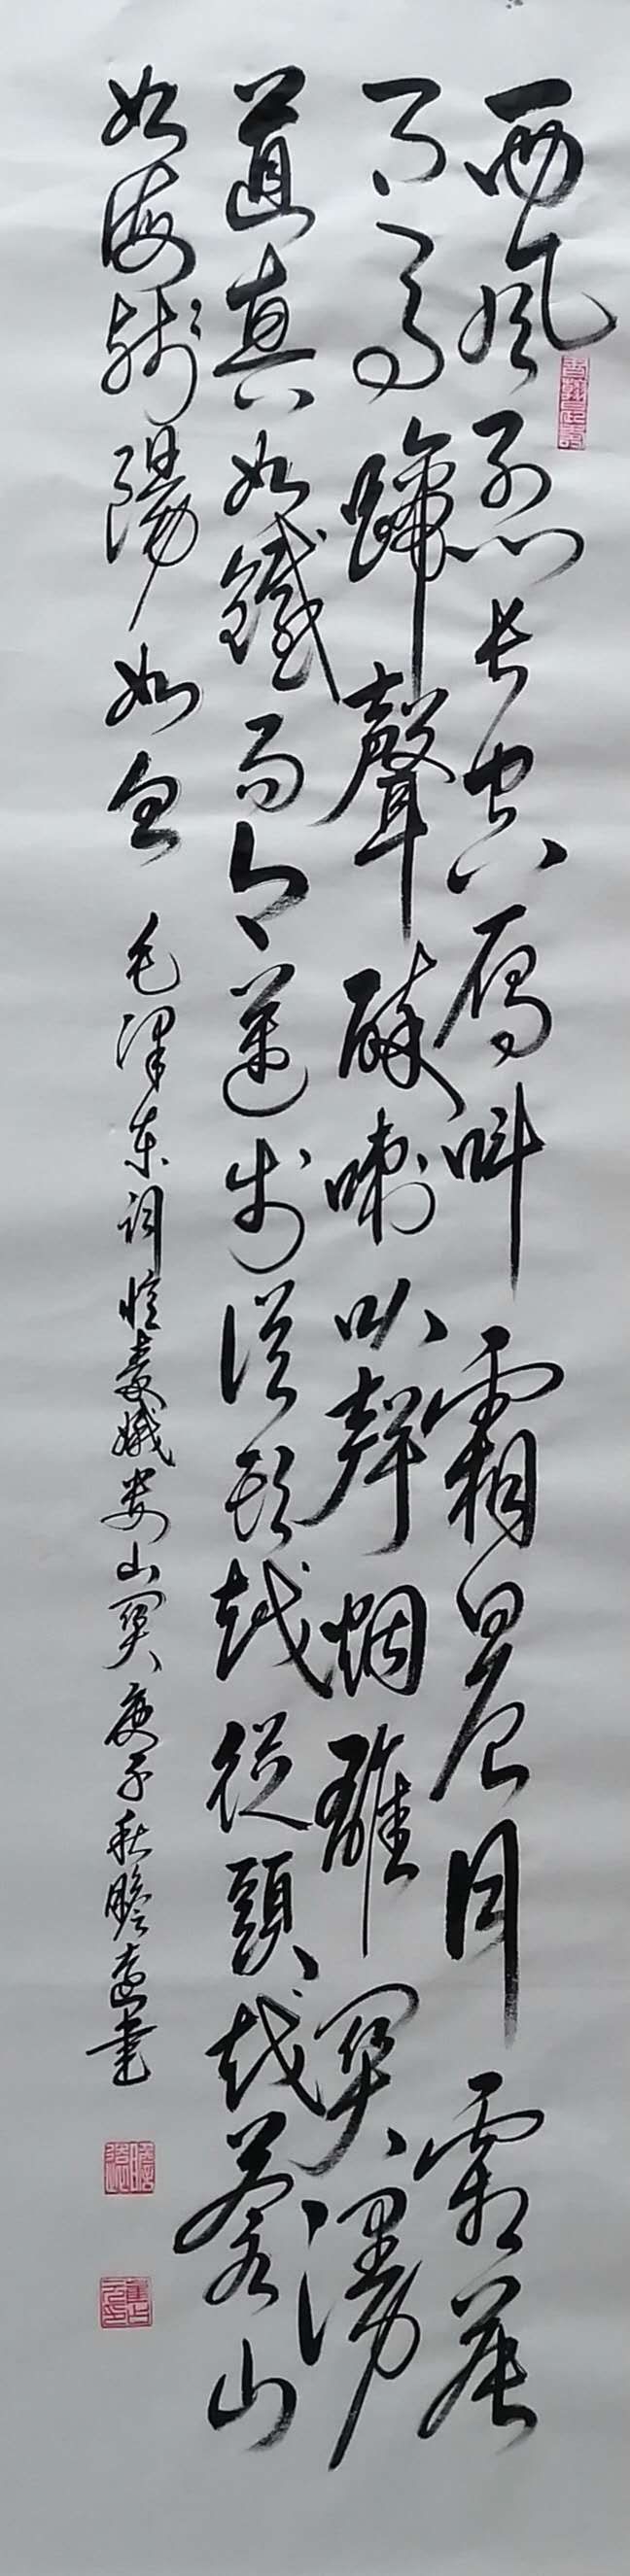 西風烈長空雁叫霜晨月霜晨
月馬蹄聲碎喇叭聲咽雄關漫
道真如鐵而今邁步從頭越從頭越蒼山
如海殘陽如血 毛澤東詞憶秦娥婁山關 庚子秋瞻遠書
瞻遠